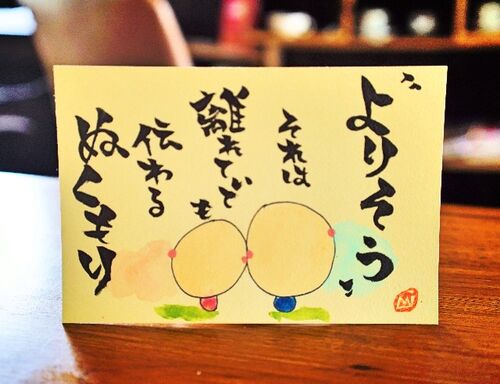 よりそう
それは
離れていても
伝わる
ぬくもり